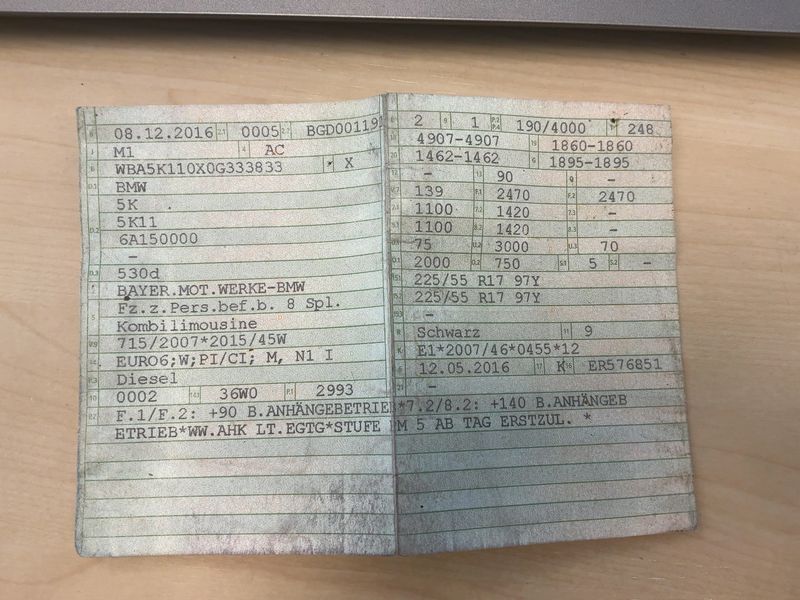 08.12.2016 0005 BGD00119
M1 AC
WBA5K110X0G333833 X
BMW
5K
5K11
6A150000
-
530d
BAYER.MOT.WERKE-BMW
Fz.z.Pers.bef.b. 8 Spl.
Kombilimousine
715/2007*2015/45W
EURO6;W;PI/CI; M, N1 I
Diesel
0002 36W0 2993
2 1 190/4000 248
4907-4907 1860-1860
1462-1462 1895-1895
- 90 -
139 2470 2470
1100 1420 -
1100 1420 -
75 3000 70
2000 750 5 -
225/55 R17 97Y
225/55 R17 97Y
-
Schwarz 9
E1*2007/46*0455*12
12.05.2016 K ER576851
-
F.1/F.2: +90 B.ANHÄNGEBETRIEB*7.2/8.2: +140 B.ANHÄNGEB
ETRIEB*WW.AHK LT.EGTG*STUFE PM 5 AB TAG ERSTZUL. *